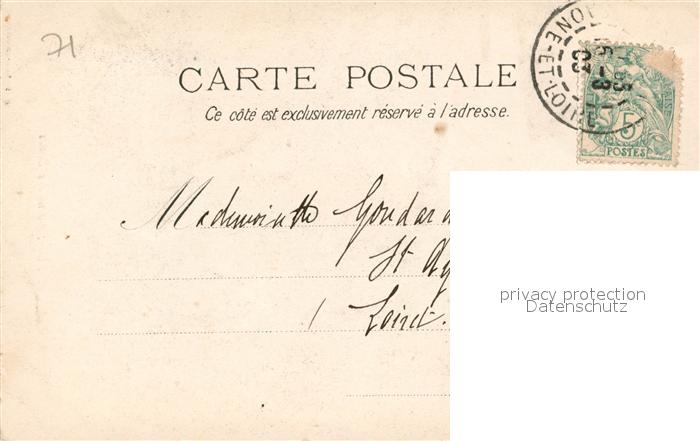 71
CARTE POSTALE
Ce côté est exclusivement réservé à l'adresse.
ONE-ET-LOIRE
5
POSTES
Mademoiselle Goudard
St Ay
Loiret.
privacy protection
Datenschutz